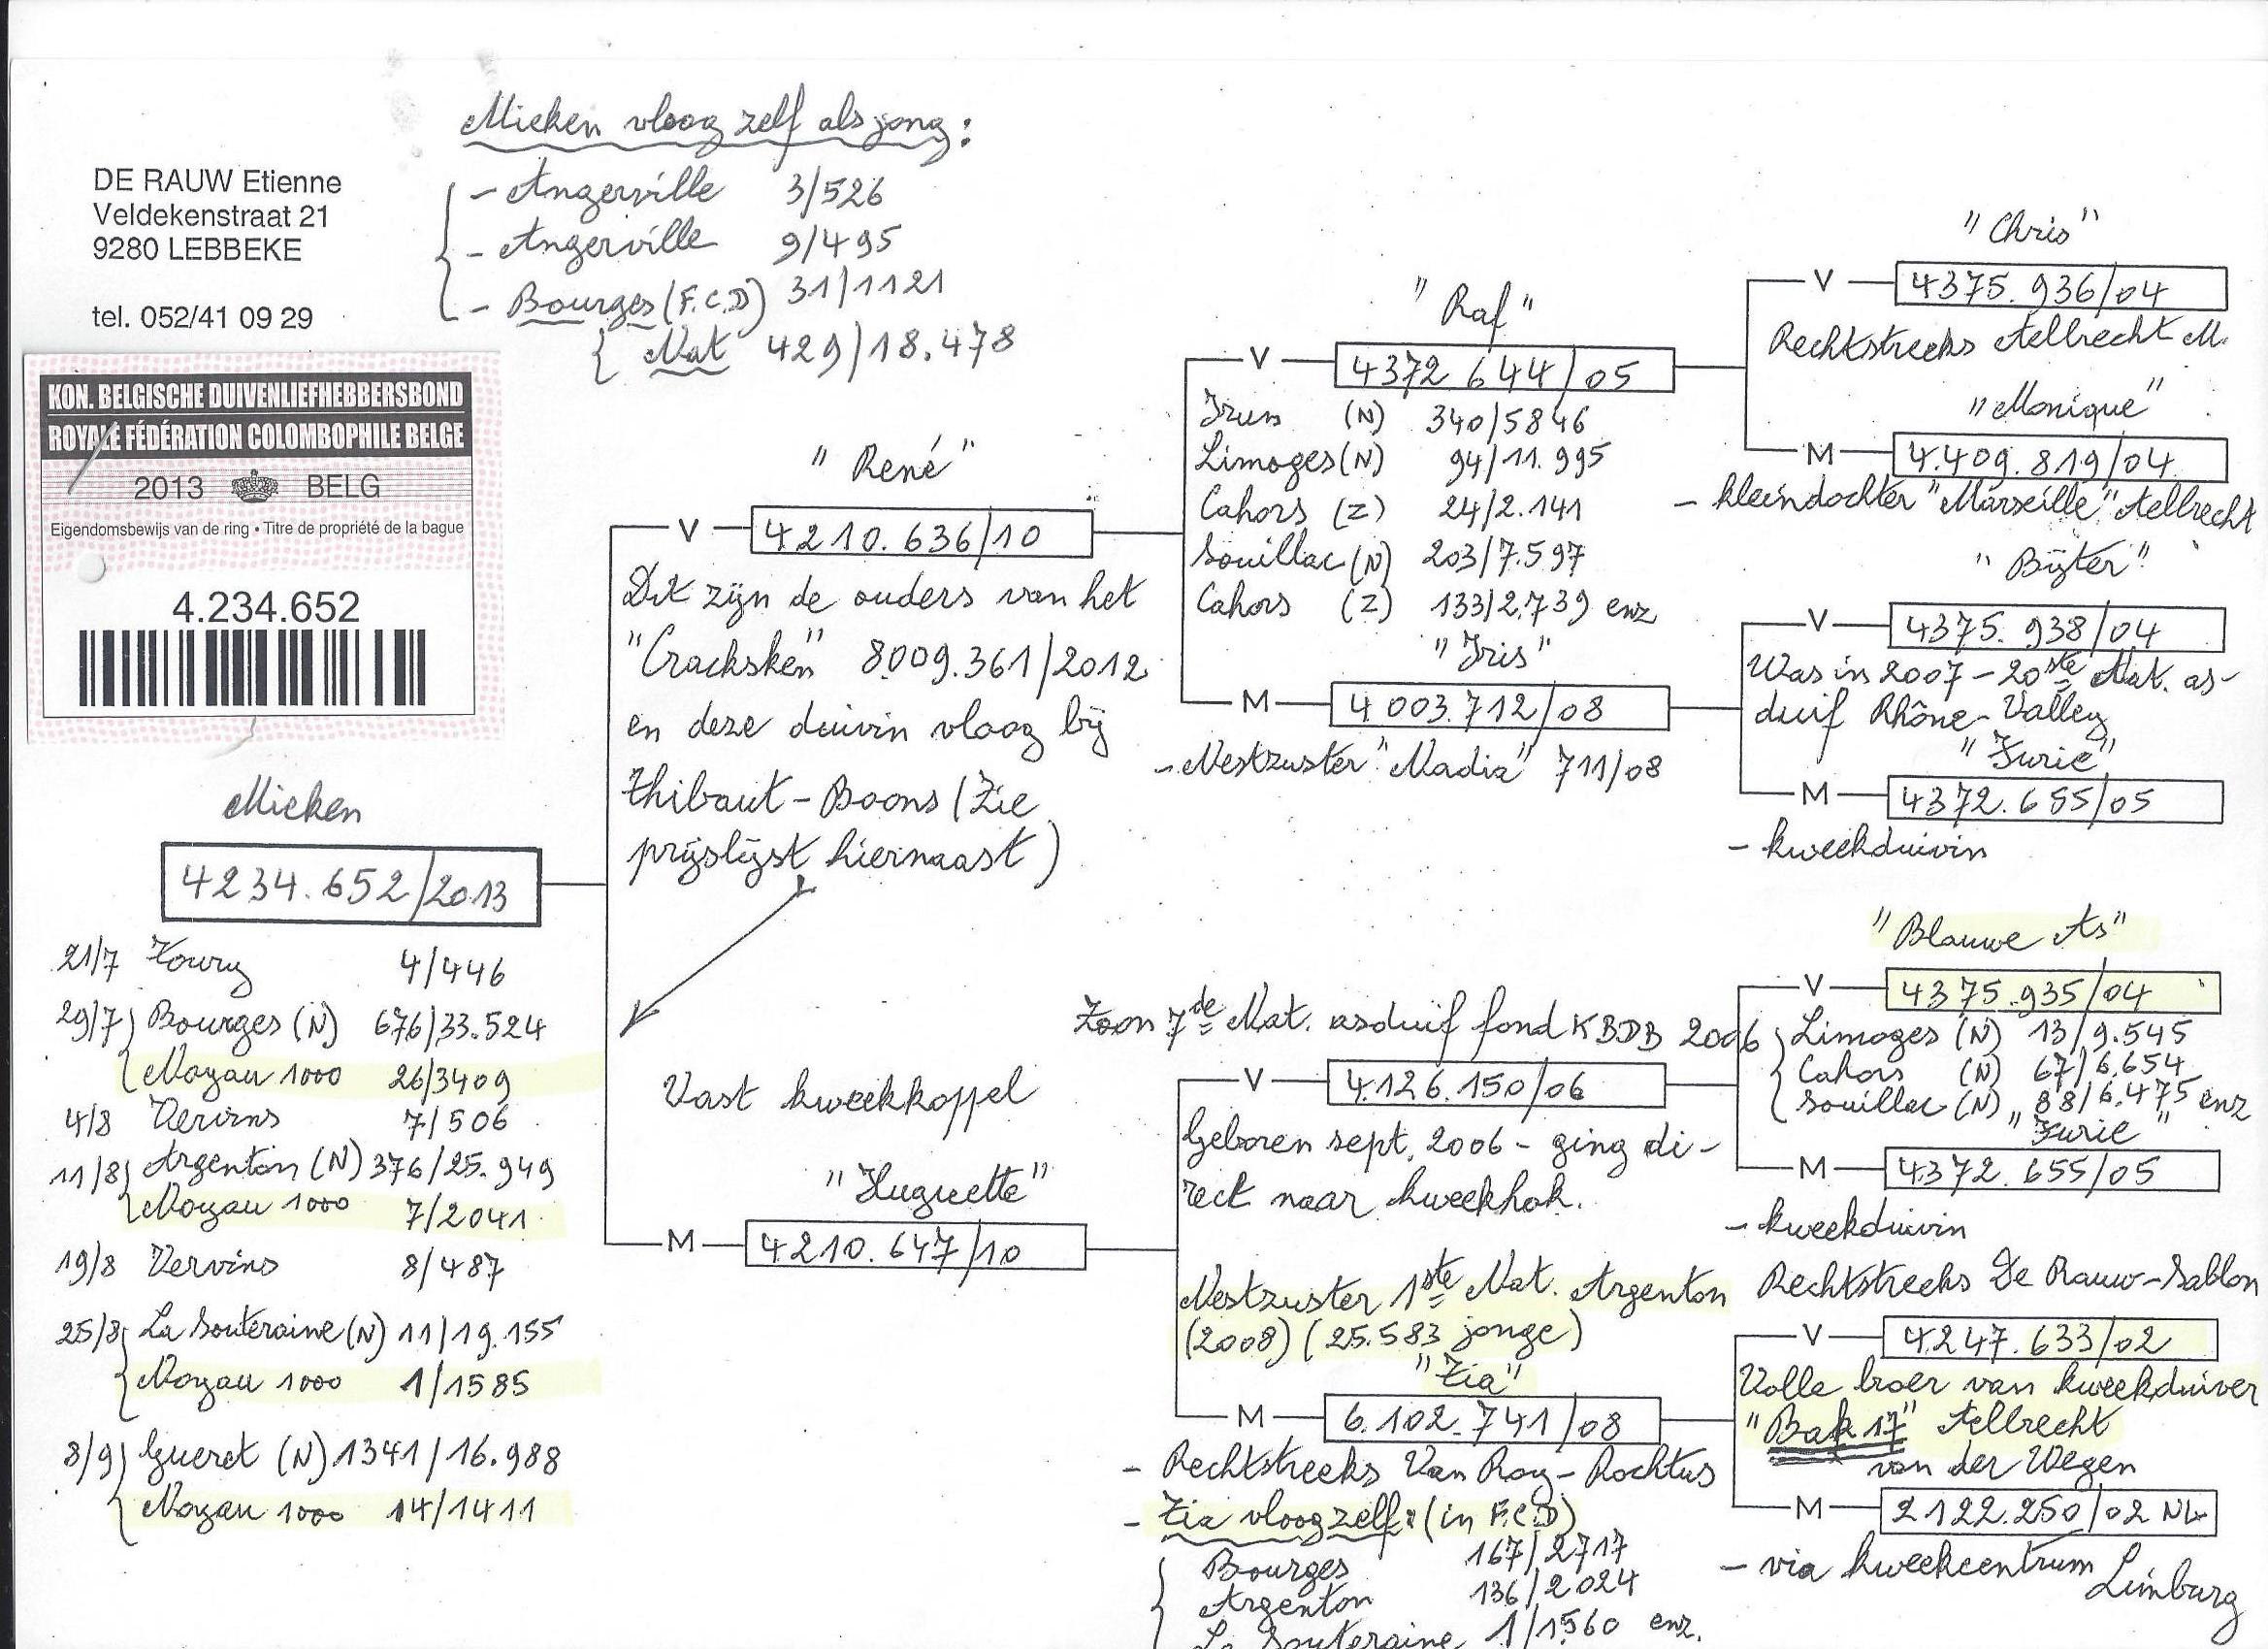 Mieken vloog zelf als jong:
- Angerville 3/526
- Angerville 9/495
- Bourges (F.C.D) 31/1121
Nat 429/18.478
DE RAUW Etienne
Veldekenstraat 21
9280 LEBBEKE
tel. 052/41 09 29
KON. BELGISCHE DUIVENLIEFHEBBERSBOND
ROYALE FÉDÉRATION COLOMBOPHILE BELGE
2013 BELG
Eigendomsbewijs van de ring • Titre de propriété de la bague
4.234.652
Mieken
4234.652/2013
21/7 Toury 4/446
29/7 Bourges (N) 676/33.524
Noyau 1000 26/3409
4/8 Vervins 7/506
11/8 Argenton (N) 376/25.949
Noyau 1000 7/2041
19/8 Vervins 8/487
25/8 La Souteraine (N) 11/19.155
Noyau 1000 1/1585
8/9 Gueret (N) 1341/16.988
Noyau 1000 14/1411
"René"
V 4210.636/10
Dit zijn de ouders van het
"Cracksken" 8009.361/2012
en deze duivin vloog bij
Thibaut-Boons (Zie
prijslijst hiernaast)
Vast kweekkoppel
"Huguette"
M 4210.647/10
"Raf"
V 4372.644/05
Irun (N) 340/5846
Limoges (N) 94/11.995
Cahors (Z) 24/2.141
Souillac (N) 203/7.597
Cahors (Z) 133/2.739 enz
"Iris"
M 4003.712/08
- Nestzuster "Nadia" 711/08
Zoon 7de Nat. asduif fond KBDB 2006
V 4.126.150/06
Geboren sept. 2006 - ging di-
rect naar kweekhok.
Nestzuster 1ste Nat. Argenton
(2008) (25.583 jonge)
"Zia"
M 6.102.741/08
- Rechtstreeks Van Roy-Rochtus
- Zia vloog zelf: (in F.C.D)
Bourges 167/2717
Argenton 136/2024
La Souteraine 1/1560 enz.
"Chris"
V 4375.936/04
Rechtstreeks Aelbrecht M.
"Monique"
M 4.409.819/04
- kleindochter "Marseille" Aelbrecht
"Bijter"
V 4375.938/04
Was in 2007 - 20ste Nat. as-
duif Rhône-Valley
"Furie"
M 4372.655/05
- kweekduivin
"Blauwe As"
V 4375.935/04
Limoges (N) 13/9.545
Cahors (N) 67/6.654
Souillac (N) 88/6.475 enz
"Furie"
M 4372.655/05
- kweekduivin
Rechtstreeks De Rauw-Sablon
V 4.247.633/02
Volle broer van kweekduiver
"Bak 17" Aelbrecht
van der Wegen
M 2122.250/02 NL
- via kweekcentrum
Limburg